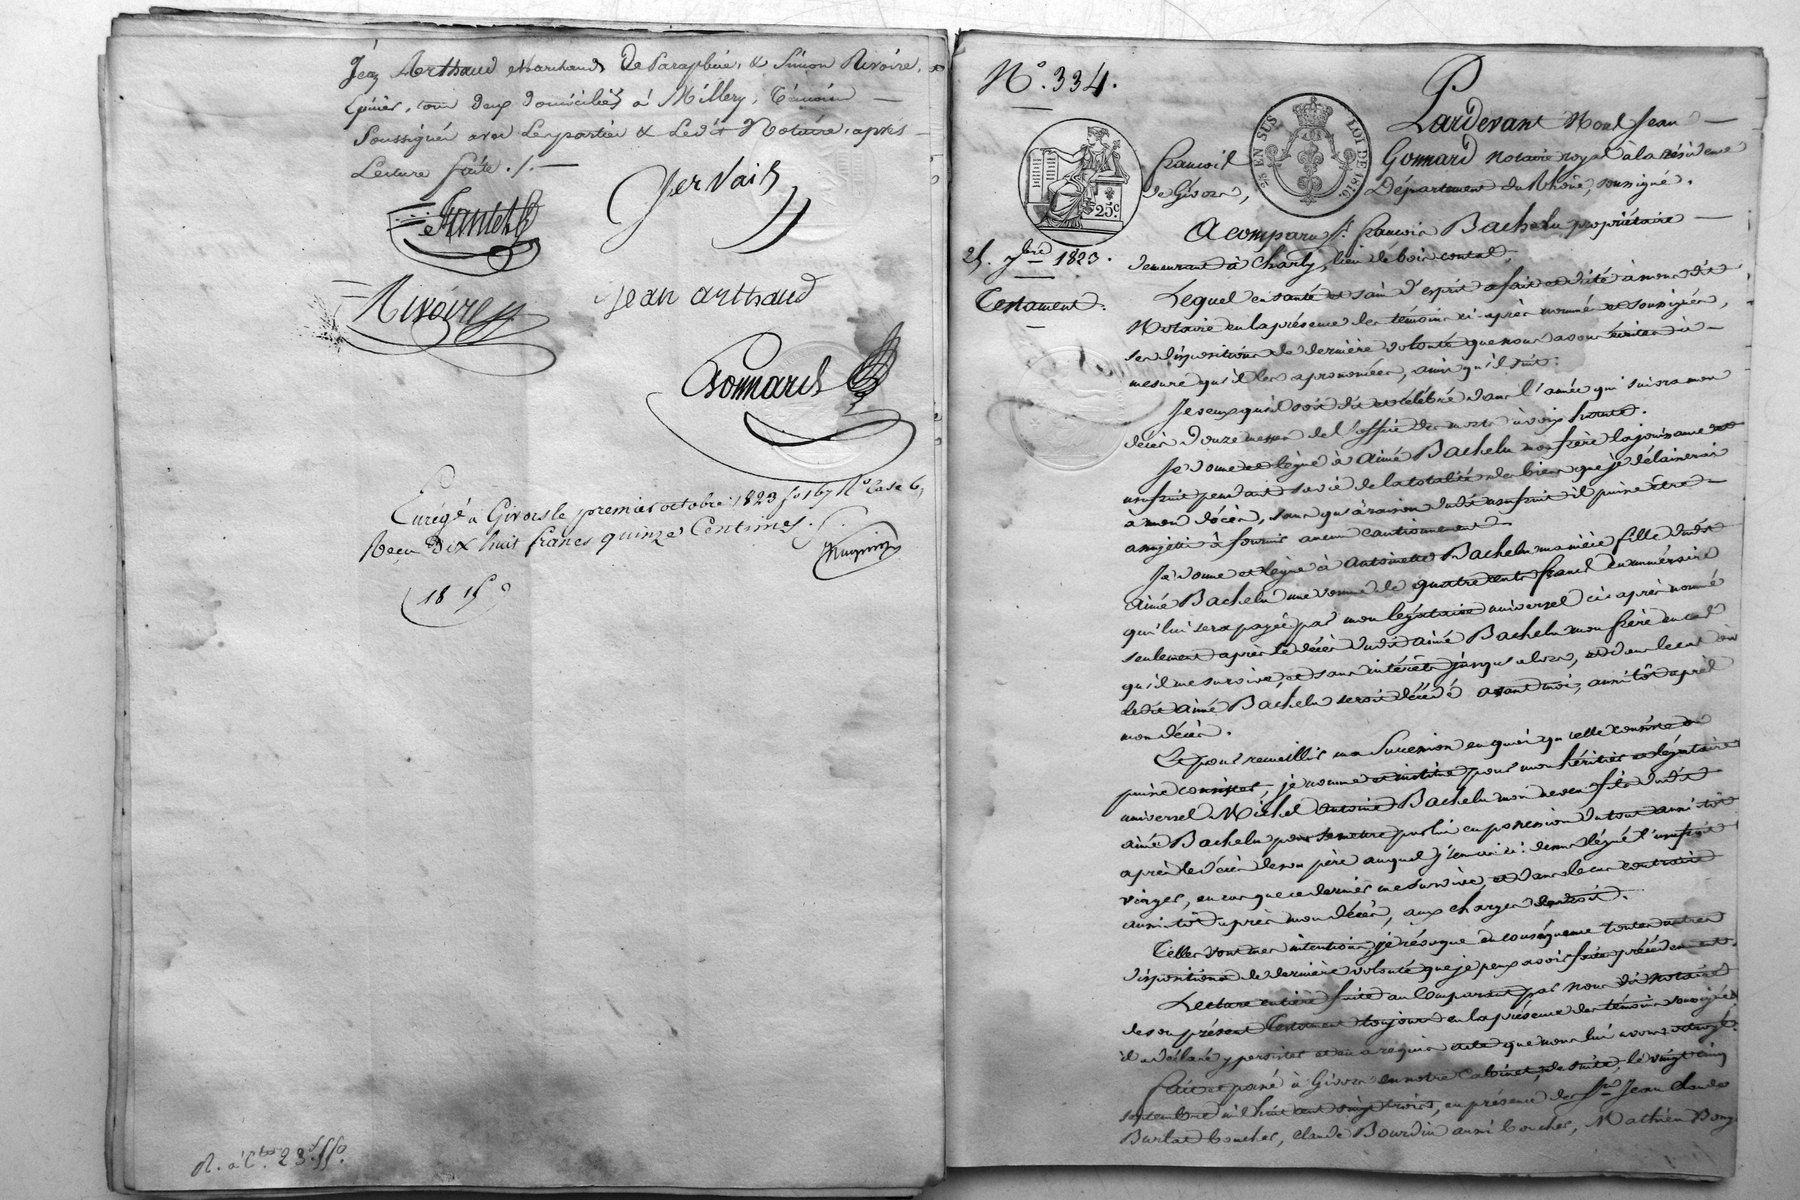 Jean Arthaud Marchand De Parapluie, & Simon Rivoire,
Epicier, tous deux domiciliés à Millery, Témoins
Soussignés avec les parties & Ledit Notaire, après
Lecture faite ./.
Jervais
Rivoire
Jean arthaud
Gonnard
Enregé à Givors le premier octobre 1823 fo 167 Ro Case 6,
Reçu Dix huit francs quinze Centimes.
18 15
N° 334.
Pardevant Noel Jean
François Gonnard Notaire royal à la résidence
de Givors, Département du Rhône, soussigné.
EN SUS
LOI DE 1816
25c
A comparu sr. françois Bachelu propriétaire
demeurant à Charly, lieu de bois contal.
25. 7bre 1823.
Testament.
Lequel en santé et sain d'esprit a fait et dicté à nous dit
Notaire en la présence des témoins ci-après nommés et soussignés,
ses dispositions de dernière volonté que nous avons écrites à
mesure qu'il les a prononcées, ainsi qu'il suit:
Je veux qu'il soit dit et célébré dans l'année qui suivra mon
décès douze messes de l'office des morts à voix haute.
Je donne et lègue à Aimé Bachelu mon frère la jouissance et
usufruit pendant sa vie de la totalité des biens que je délaisserai
à mon décès, sans qu'à raison dudit usufruit il puisse être
assujetti à fournir aucun cautionnement.
Je donne et lègue à Antoinette Bachelu ma nièce fille dudit
Aimé Bachelu une somme de quatre cents francs en numéraire
qui lui sera payée par mon légataire universel ci après nommé
seulement après le décès dudit aimé Bachelu mon frère en cas
qu'il me survive, et sans intérêts jusqu'alors, et dans le cas où
ledit aimé Bachelu seroit décédé avant moi, aussitôt après
mon décès.
Et pour recueillir ma Succession en quoi qu'elle consiste ou
puisse consister, je nomme et institue pour mon héritier et légataire
universel Michel Antoine Bachelu mon neveu fils dudit
aimé Bachelu pour se mettre par lui en possession du tout aussitôt
après le décès de son père auquel j'en ai ci-dessus légué l'usufruit
viager, en cas que ce dernier me survive, et dans le cas contraire
aussitôt après mon décès, aux charges de droit.
Telles sont mes intentions, je révoque en conséquence toutes autres
dispositions de dernière volonté que je peux avoir faites précédemment.
Lecture entière faite au Comparant par nous dit Notaire
de son présent Testament toujours en la présence des témoins soussignés
il a déclaré y persister et en a requis acte que nous lui avons octroyé.
fait et passé à Givors en notre Cabinet, de suite, le vingt cinq
septembre mil huit cent vingt trois, en présence des Srs Jean Claude
Burlat boucher, claude Bourdin aussi boucher, Mathieu